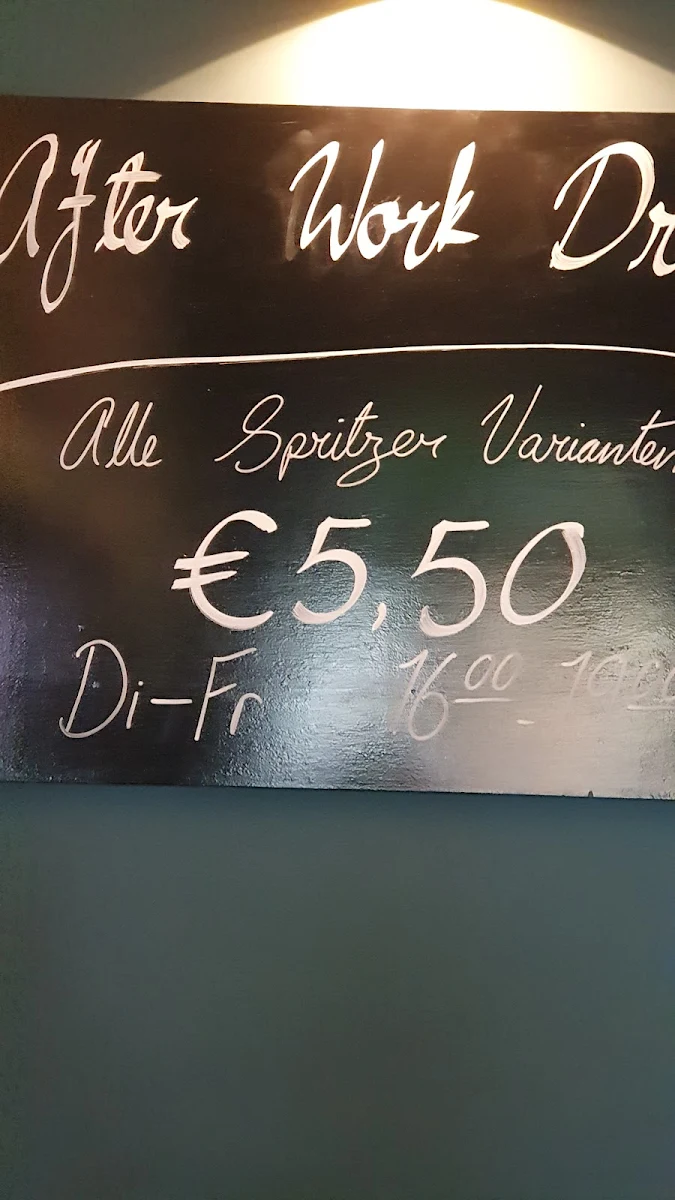 After Work Dr
Alle Spritzer Varianten
€5,50
Di-Fr 16⁰⁰ - 19⁰⁰